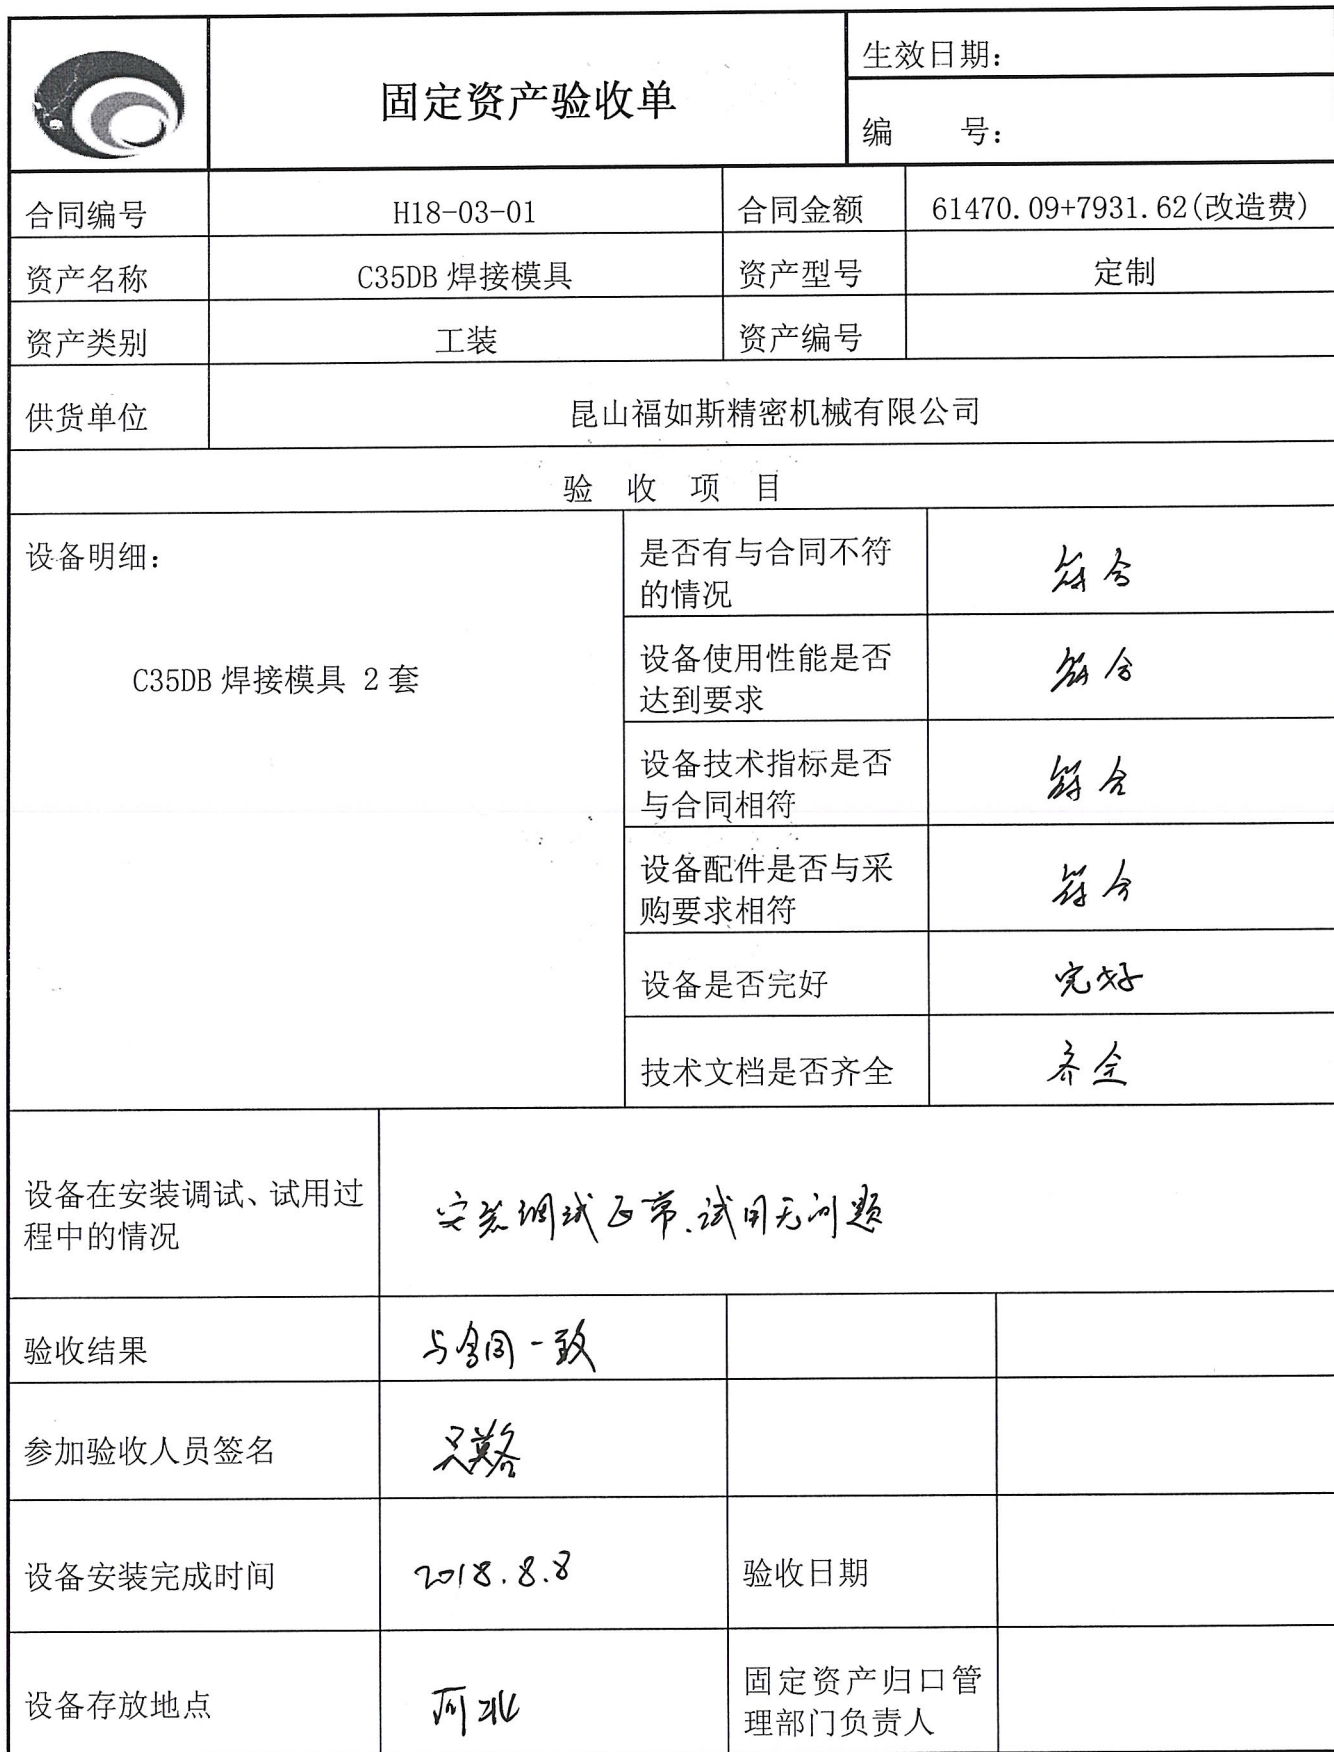 固定资产验收单
生效日期:
编 号:
合同编号 H18-03-01 合同金额 61470.09+7931.62(改造费)
资产名称 C35DB 焊接模具 资产型号 定制
资产类别 工装 资产编号
供货单位 昆山福如斯精密机械有限公司
验 收 项 目
设备明细:
C35DB 焊接模具 2 套
是否有与合同不符
的情况
符合
设备使用性能是否
达到要求
符合
设备技术指标是否
与合同相符
符合
设备配件是否与采
购要求相符
符合
设备是否完好 完好
技术文档是否齐全 齐全
设备在安装调试、试用过
程中的情况
安装调试正常、试用无问题
验收结果 与合同一致
参加验收人员签名
设备安装完成时间 2018.8.8 验收日期
设备存放地点 河北
固定资产归口管
理部门负责人